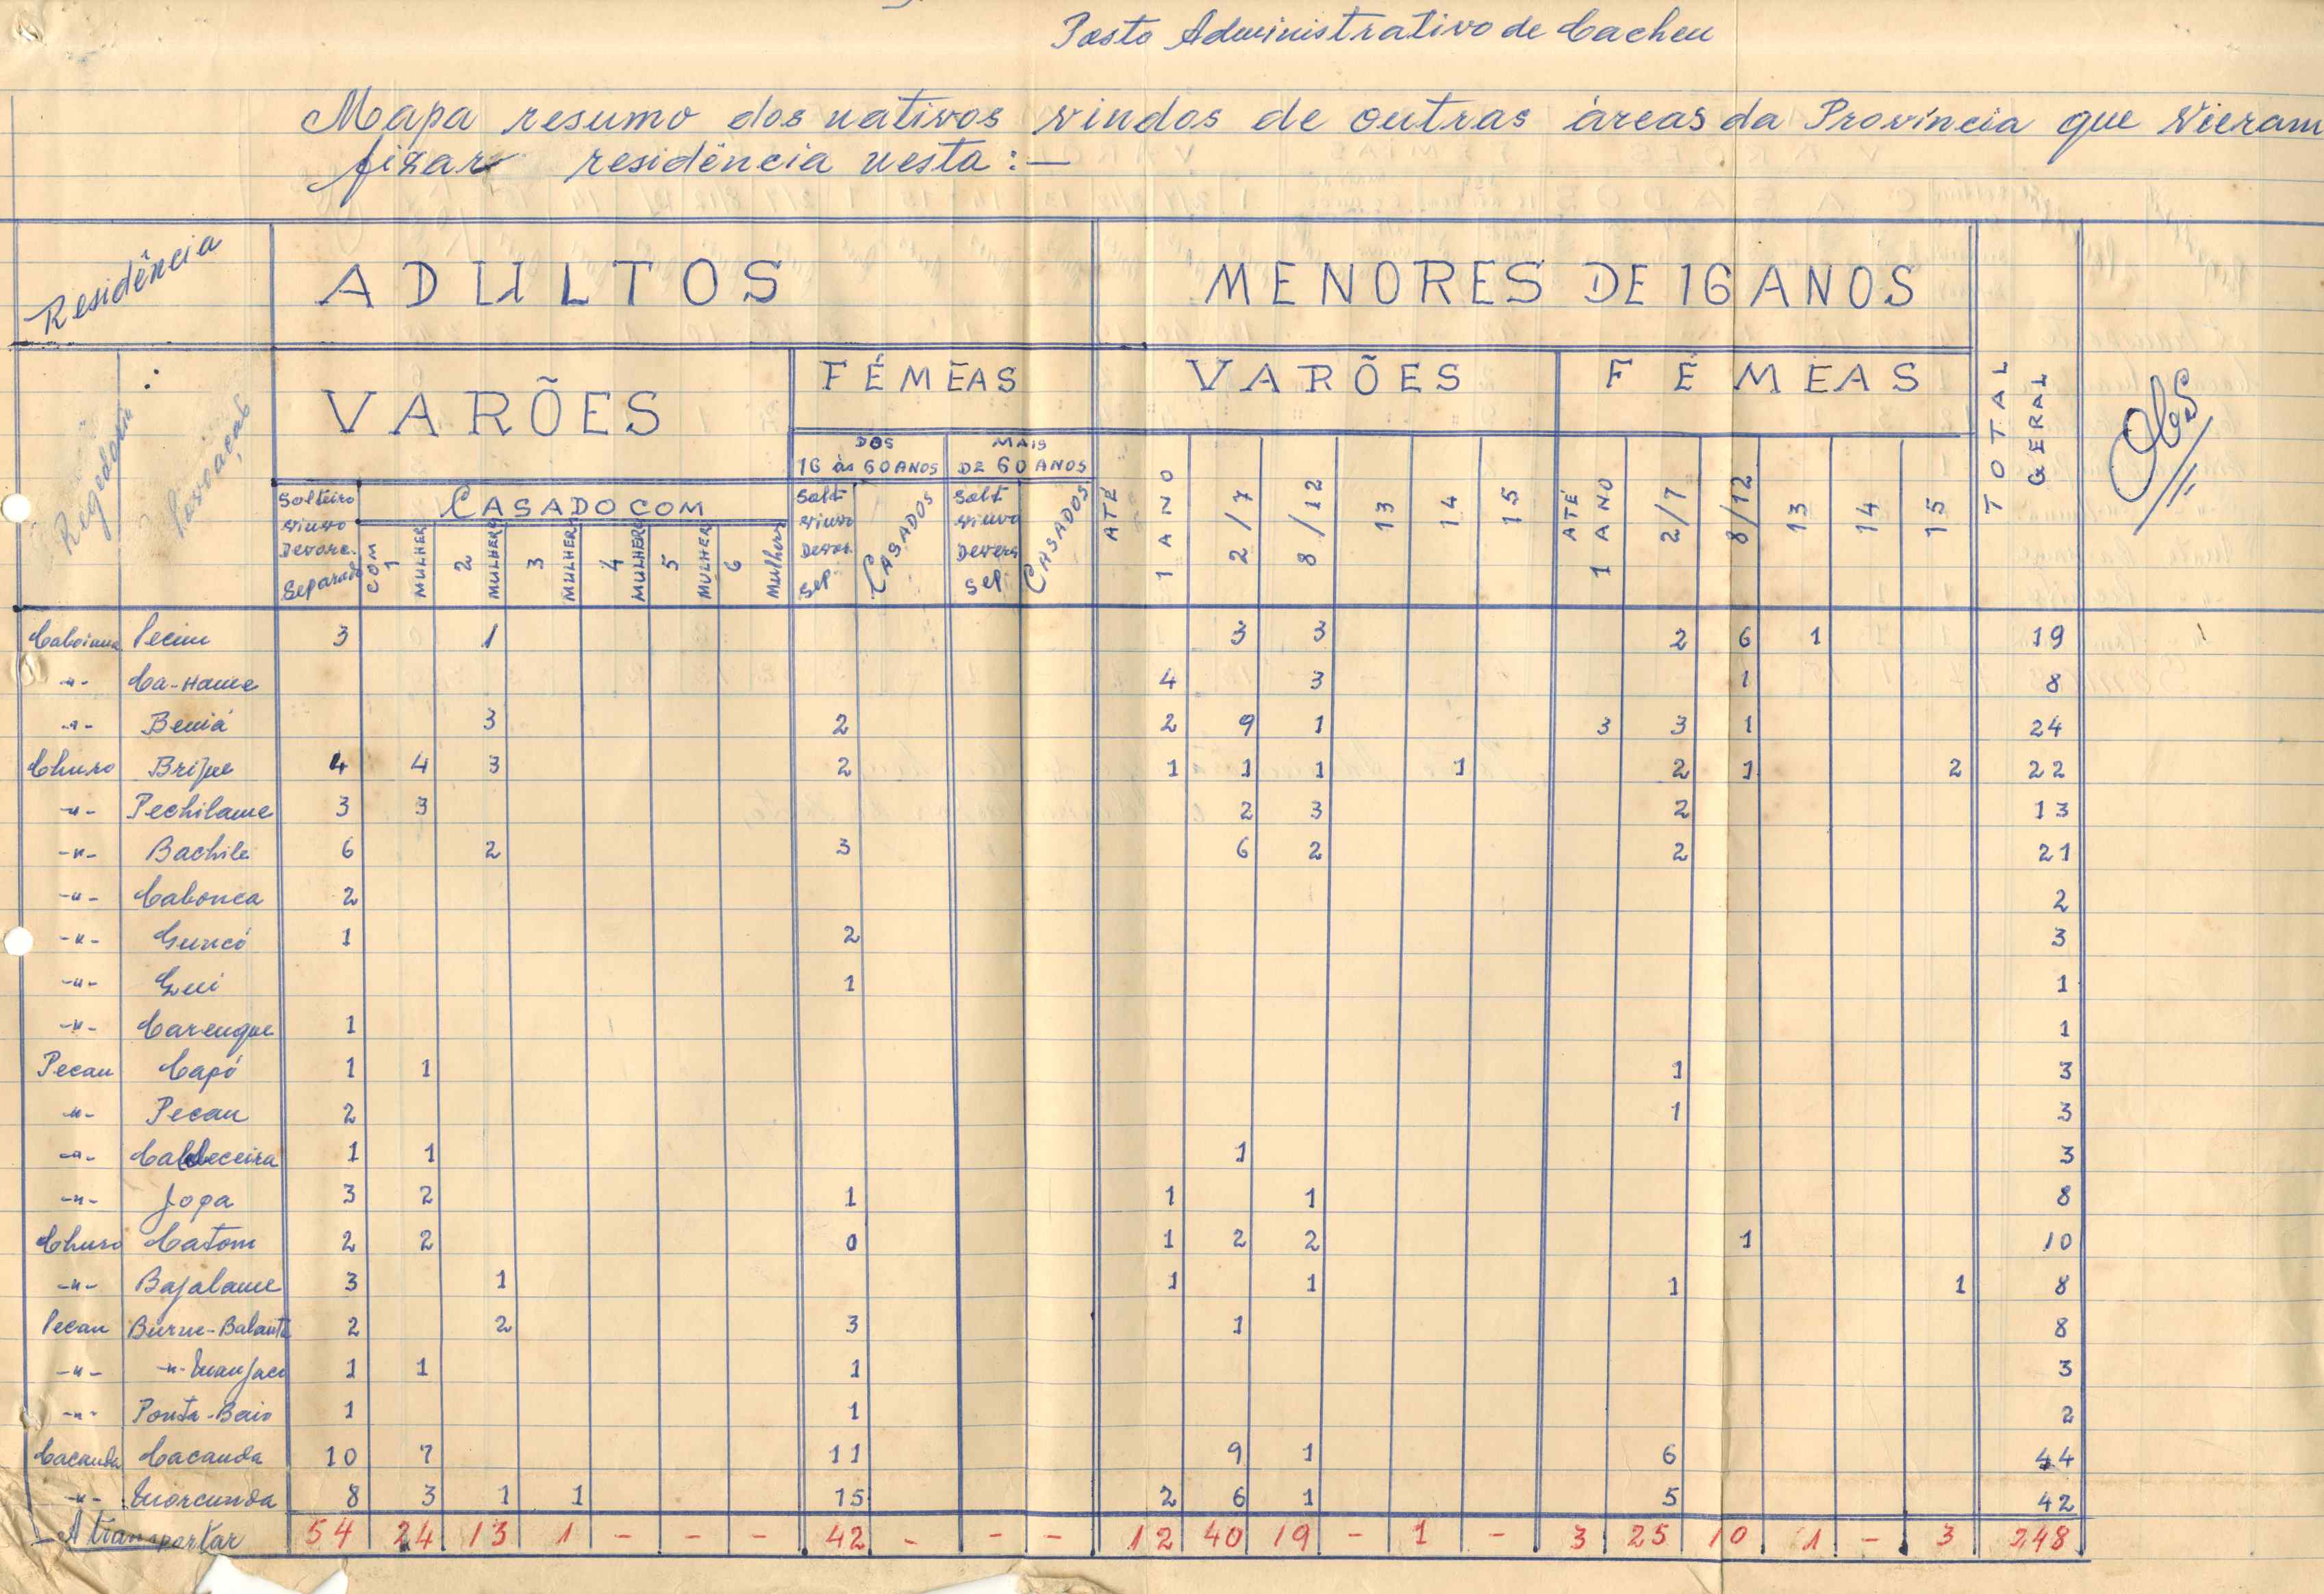 Posto Administrativo de Cacheu
Mapa resumo dos nativos vindos de outras áreas da Província que vieram
fixar residência nesta :—
Residência
ADULTOS
MENORES DE 16 ANOS
TOTAL GERAL
Obs
Regedoria
Povoação
VARÕES
FÉMEAS
VARÕES
FÉMEAS
DOS 16 às 60 ANOS
MAIS DE 60 ANOS
Solteiro viuvo Devorc. Separado
CASADO COM
COM 1 MULHER
2 MULHERS
3 MULHERS
4 MULHERS
5 MULHER
6 Mulhers
Solt viuvo Devor. Sep.
CASADOS
Solt. viuva Devorc Sep.
CASADOS
ATÉ 1 ANO
2/7
8/12
13
14
15
ATÉ 1 ANO
2/7
8/12
13
14
15
Caboiana Pecim 3 1 3 3 2 6 1 19
-"- Ca-Hame 4 3 1 8
-"- Beniá 3 2 2 9 1 3 3 1 24
Churo Brique 4 4 3 2 1 1 1 1 2 1 2 22
-"- Pechilame 3 3 2 3 2 13
-"- Bachile 6 2 3 6 2 2 21
-"- Cabonca 2 2
-"- Guncó 1 2 3
-"- Gui 1 1
-"- Carengue 1 1
Pecau Capó 1 1 1 3
-"- Pecau 2 1 3
-"- Cabeceira 1 1 1 3
-"- Jopa 3 2 1 1 1 8
Churo Catom 2 2 0 1 2 2 1 10
-"- Bajalame 3 1 1 1 1 1 8
Pecau Burne-Balanta 2 2 3 1 8
-"- -"- Manjaco 1 1 1 3
-"- Ponta-Baio 1 1 2
Cacanda Cacanda 10 7 11 9 1 6 44
-"- Morcunda 8 3 1 1 15 2 6 1 5 42
A transportar 54 24 13 1 - - - 42 - - - 12 40 19 - 1 - 3 25 10 1 - 3 248